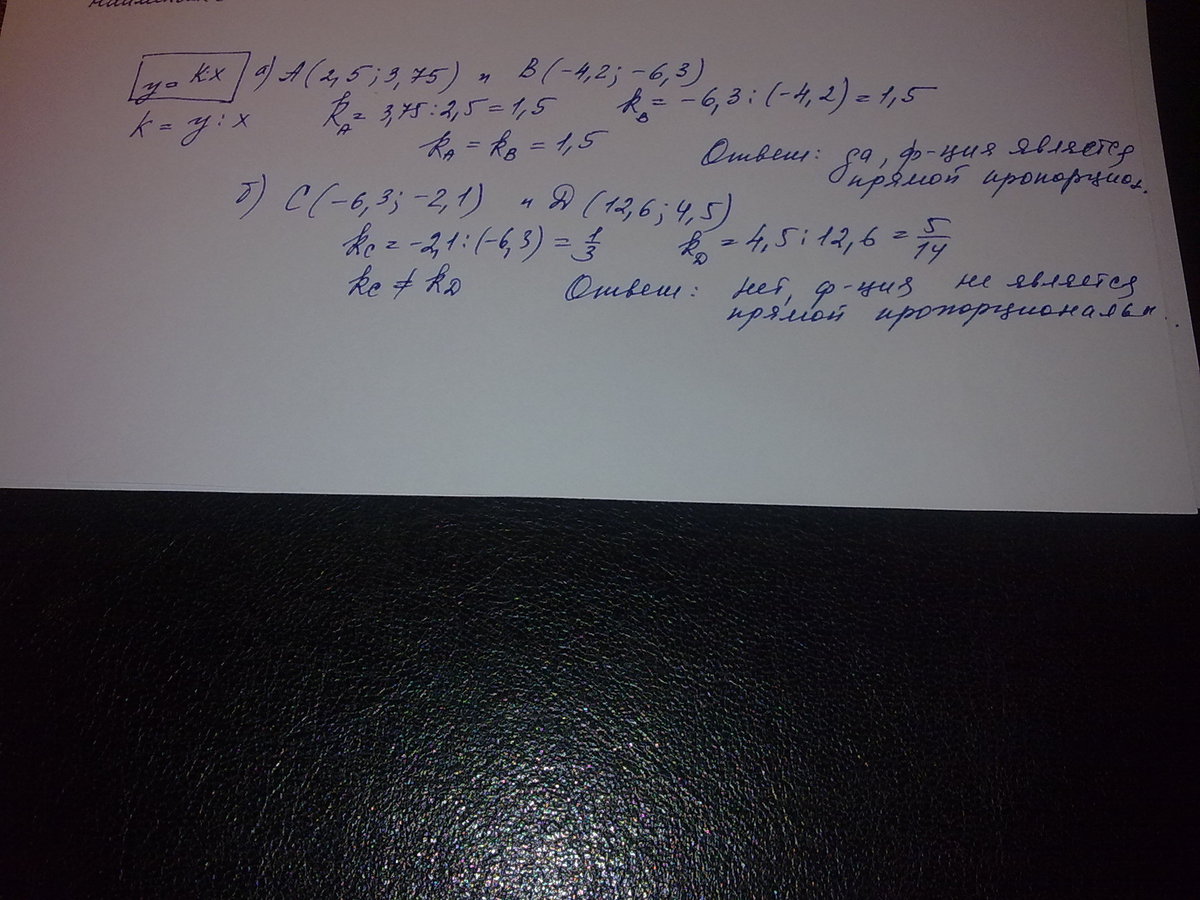 y = k·x а) A(2,5; 3,75) и B(-4,2; -6,3)
k = y : x k_A = 3,75 : 2,5 = 1,5 k_B = -6,3 : (-4,2) = 1,5
k_A = k_B = 1,5 Ответ: да, ф-ция является
прямой пропорцион.
б) C(-6,3; -2,1) и D(12,6; 4,5)
k_C = -2,1 : (-6,3) = 1/3 k_D = 4,5 : 12,6 = 5/14
k_C ≠ k_D Ответ: нет, ф-ция не является
прямой пропорциональн.